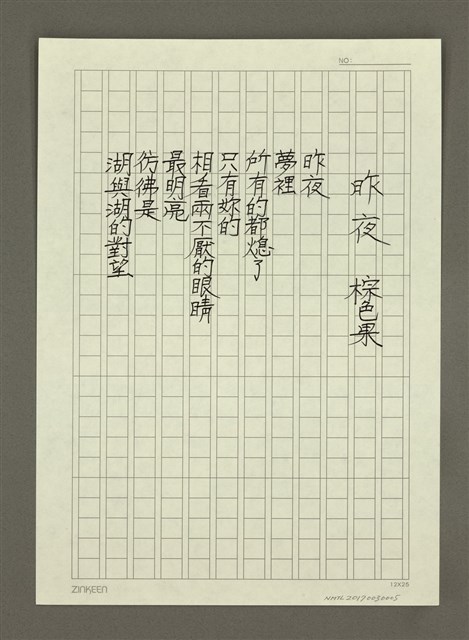 NO:
昨夜 棕色果
昨夜
夢裡
所有的都熄了
只有妳的
相看兩不厭的眼睛
最明亮
彷彿是
湖與湖的對望
ZINKEEN
12X25
NMTL20190030005